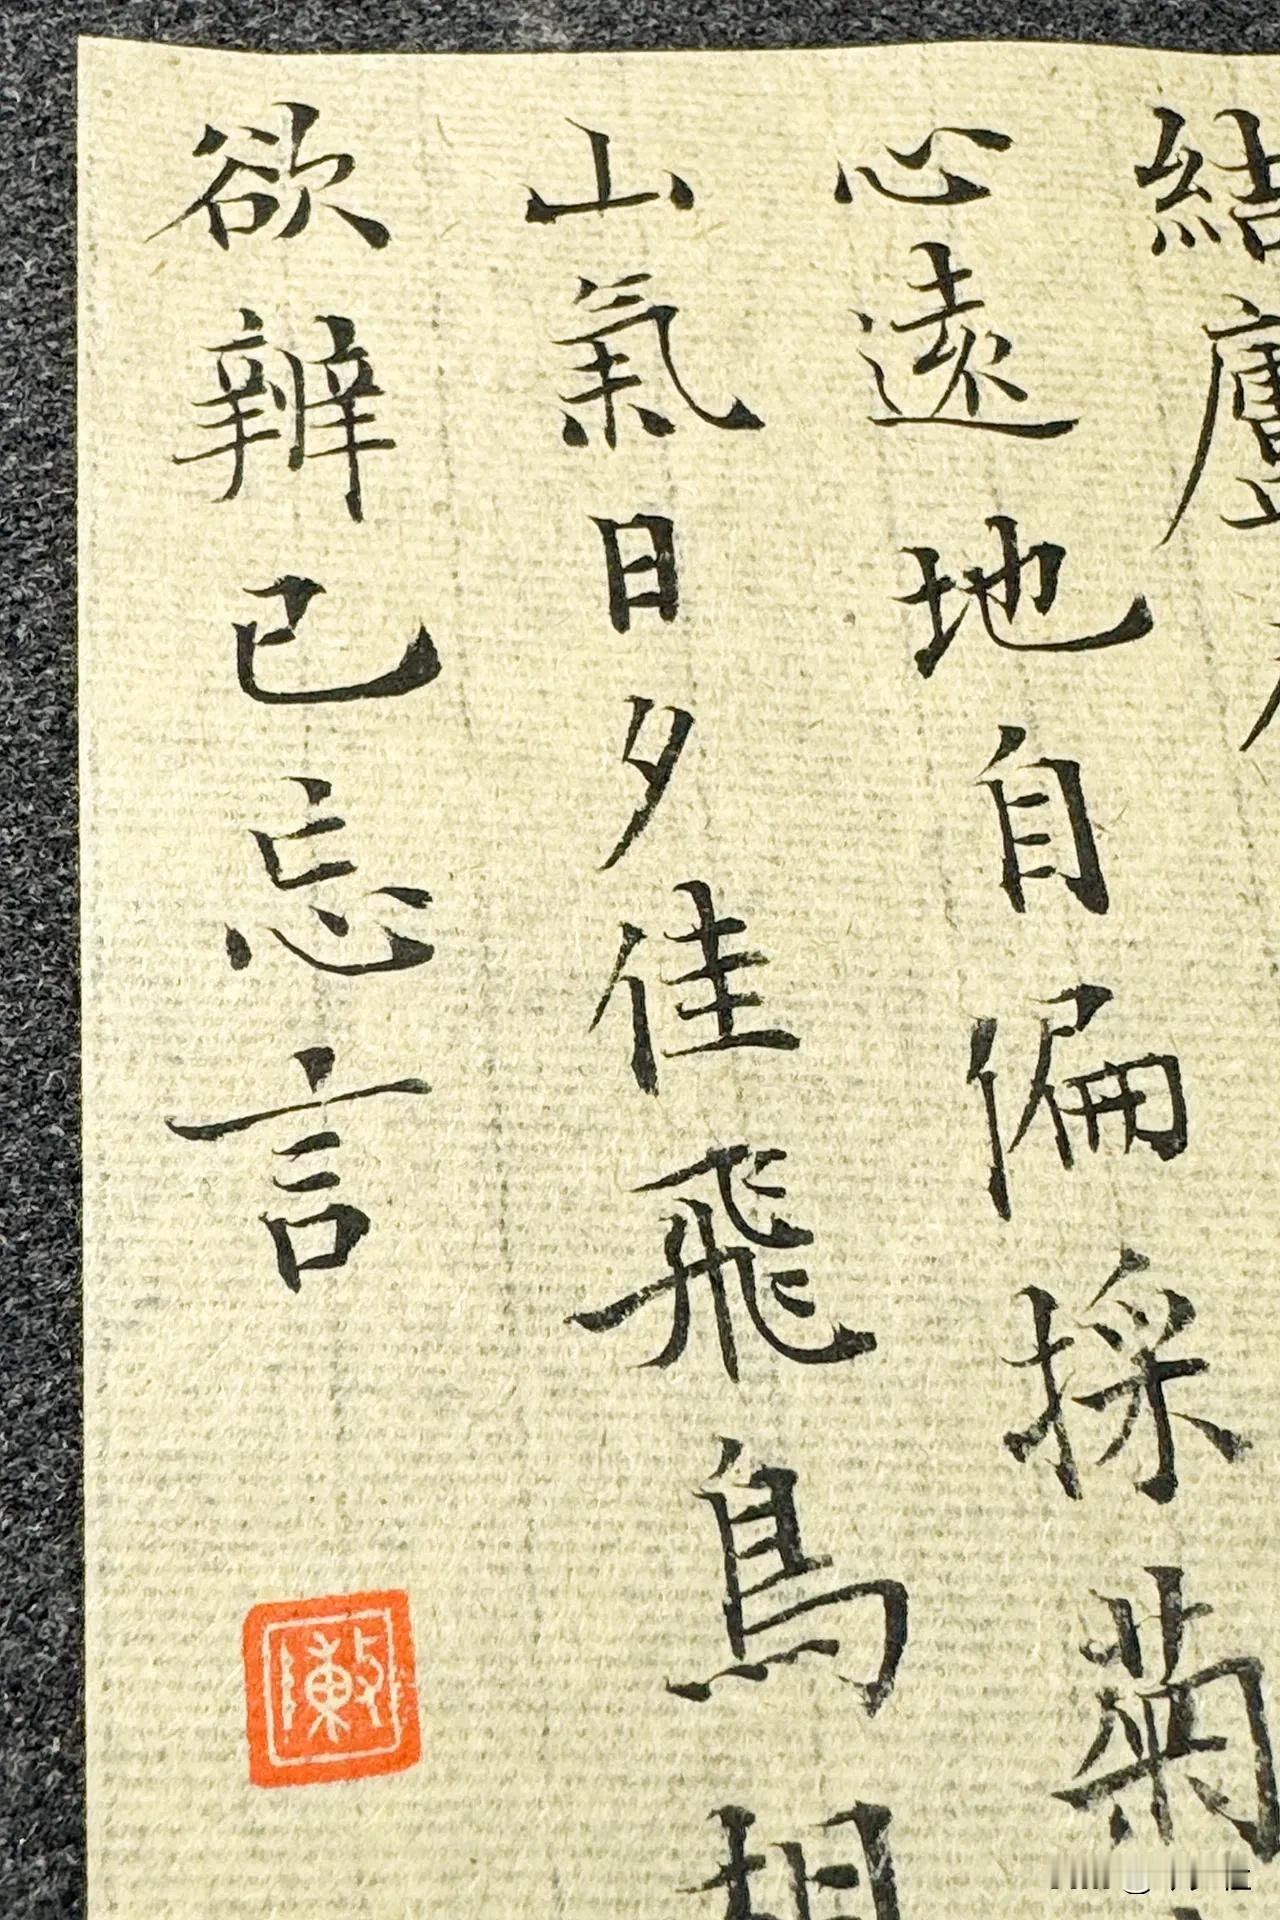 結廬
心遠地自偏採菊
山氣日夕佳飛鳥相
欲辨已忘言